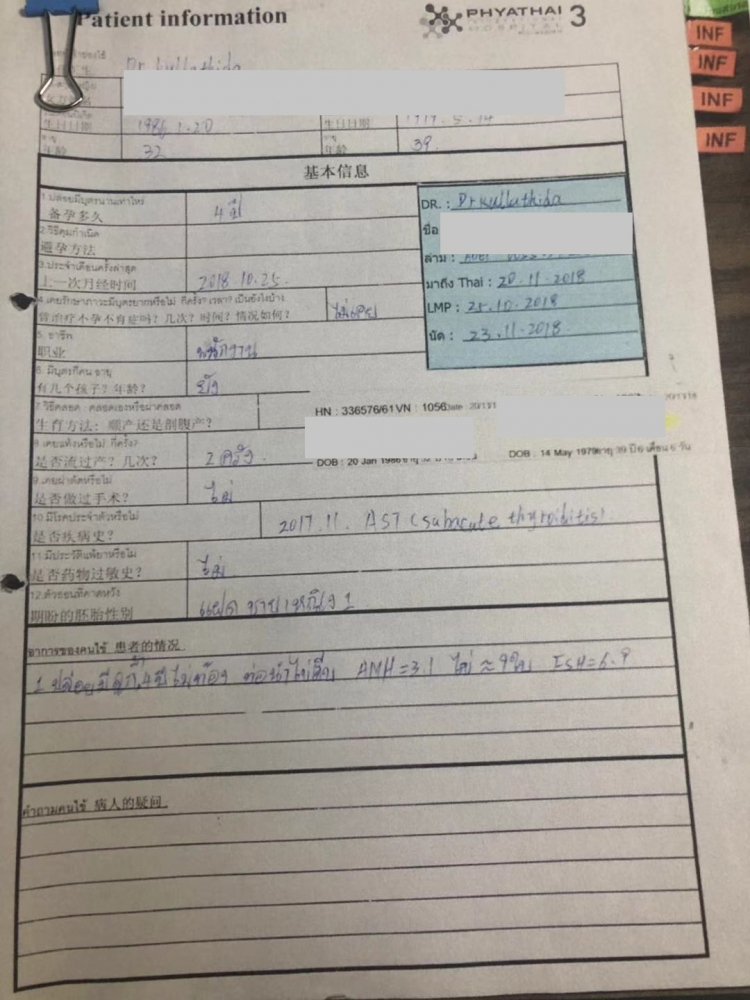 Patient information
PHYATHAI 3
HOSPITAL
INF
INF
INF
INF
Dr kullathida
生日日期 1986.1.20 生日日期
年龄 32 年龄 39
基本信息
1.ปล่อยมีบุตรนานเท่าไหร่
备孕多久 4 ปี
2.วิธีคุมกำเนิด
避孕方法
3.ประจำเดือนครั้งล่าสุด
上一次月经时间 2018.10.25.
4.เคยรักษาภาวะมีบุตรยากหรือไม่ กี่ครั้ง? เวลา? เป็นยังไงบ้าง
曾治疗不孕不育症吗? 几次? 时间? 情况如何? ไม่เคย
5. อาชีพ
职业 พนักงาน
6. มีบุตรกี่คน อายุ
有几个孩子? 年龄? ยัง
7. วิธีคลอด : คลอดเองหรือผ่าคลอด
生育方法: 顺产还是剖腹产?
8.เคยแท้งหรือไม่ กี่ครั้ง?
是否流过产? 几次? 2 ครั้ง
9.เคยผ่าตัดหรือไม่
是否做过手术? ไม่
10.มีโรคประจำตัวหรือไม่
是否疾病史? 2017.11. AST (subacute thyroiditis).
11.มีประวัติแพ้ยาหรือไม่
是否药物过敏史? ไม่
12.ตัวอ่อนที่คาดหวัง
期盼的胚胎性别 แฝด ชาย1หญิง 1
DR. : Dr kullathida
ชื่อ
ล่าม :
มาถึง Thai : 20.11.2018
LMP : 25.10.2018
นัด : 23.11.2018
HN : 336576/61 VN : 1056
DOB : 20 Jan 1986
DOB : 14 May 1979 อายุ 39 ปี 6 เดือน 6 วัน
อาการของคนไข้ 患者的情况
1. ปล่อยมีลูก 4 ปี ไม่ท้อง ท่อนำไข่ตีบ AMH = 3.1 ไข่ ≈ 9 ใบ FSH = 6.9
คำถามคนไข้ 病人的疑问